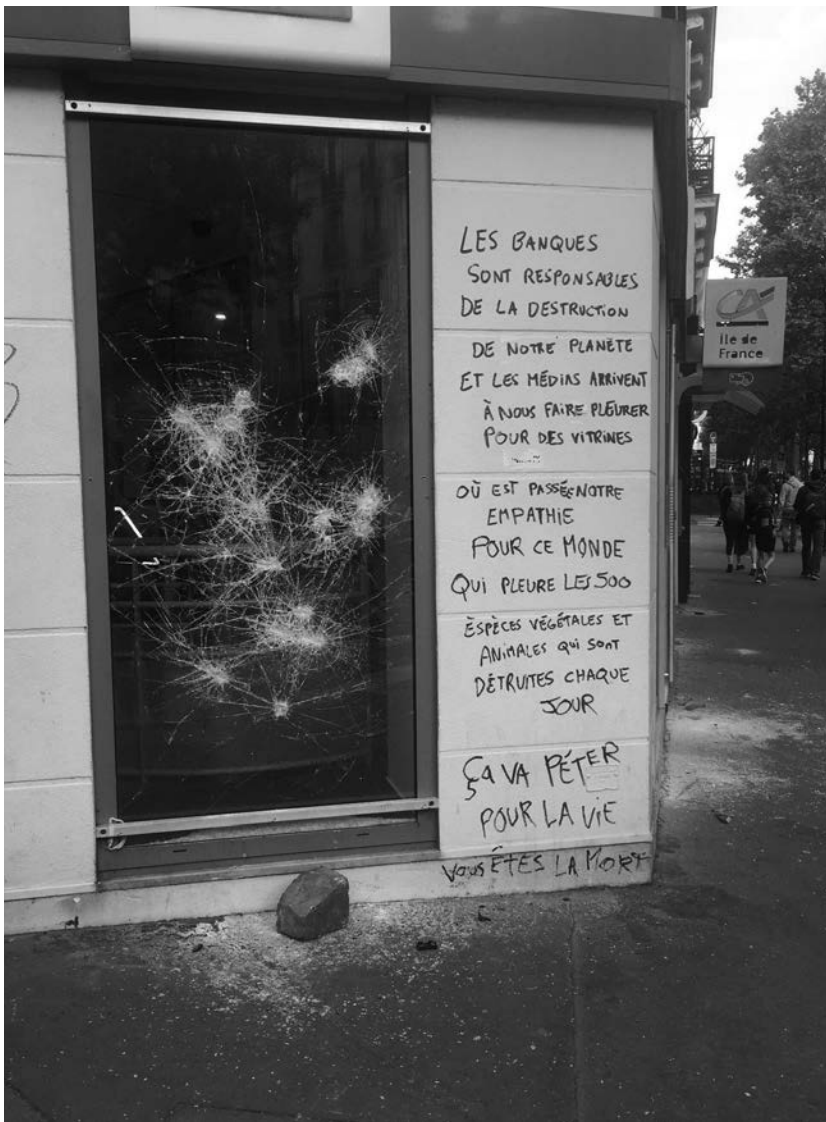 LES BANQUES
SONT RESPONSABLES
DE LA DESTRUCTION
DE NOTRE PLANÈTE
ET LES MÉDIAS ARRIVENT
À NOUS FAIRE PLEURER
POUR DES VITRINES
OÙ EST PASSÉE NOTRE
EMPATHIE
POUR CE MONDE
QUI PLEURE LES 500
ESPÈCES VÉGÉTALES ET
ANIMALES QUI SONT
DÉTRUITES CHAQUE
JOUR
ÇA VA PÉTER
POUR LA VIE
VOUS ÊTES LA MORT
CA
Ile de
France